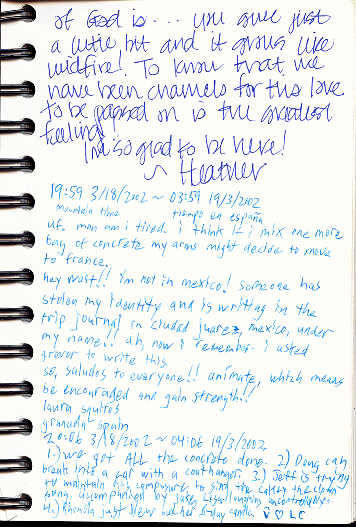 of God is... you give just
a little bit and it grows like
wildfire! To know that we
have been channels for this love
to be passed on is the greatest
feeling!
I'm so glad to be here!
~ Heather
19:59 3/18/2002 ~ 03:59 19/3/2002
mountain time tiempo en españa
uf. man am i tired. i think if i mix one more
bag of concrete my arms might decide to move
to france.
hey wait!! i'm not in mexico! someone has
stolen my identity and is writing in the
trip journal in ciudad juarez, mexico, under
my name!! ah, now i remember. i asked
trevor to write this.
so, saludos to everyone!! animate, which means
be encouraged and gain strength!!
laura squires
granada, spain
20:06 3/18/2002 ~ 04:06 19/3/2002
1.) we got ALL the concrete done. 2) Doug can
break into a car with a coathanger. 3.) Jeff is trying
to maintain his composure to sing the
song, accompanied by Jake, Leigh laughing uncontrollably.
4.) Rhonda just blew out her b-day candles. ♥ LC